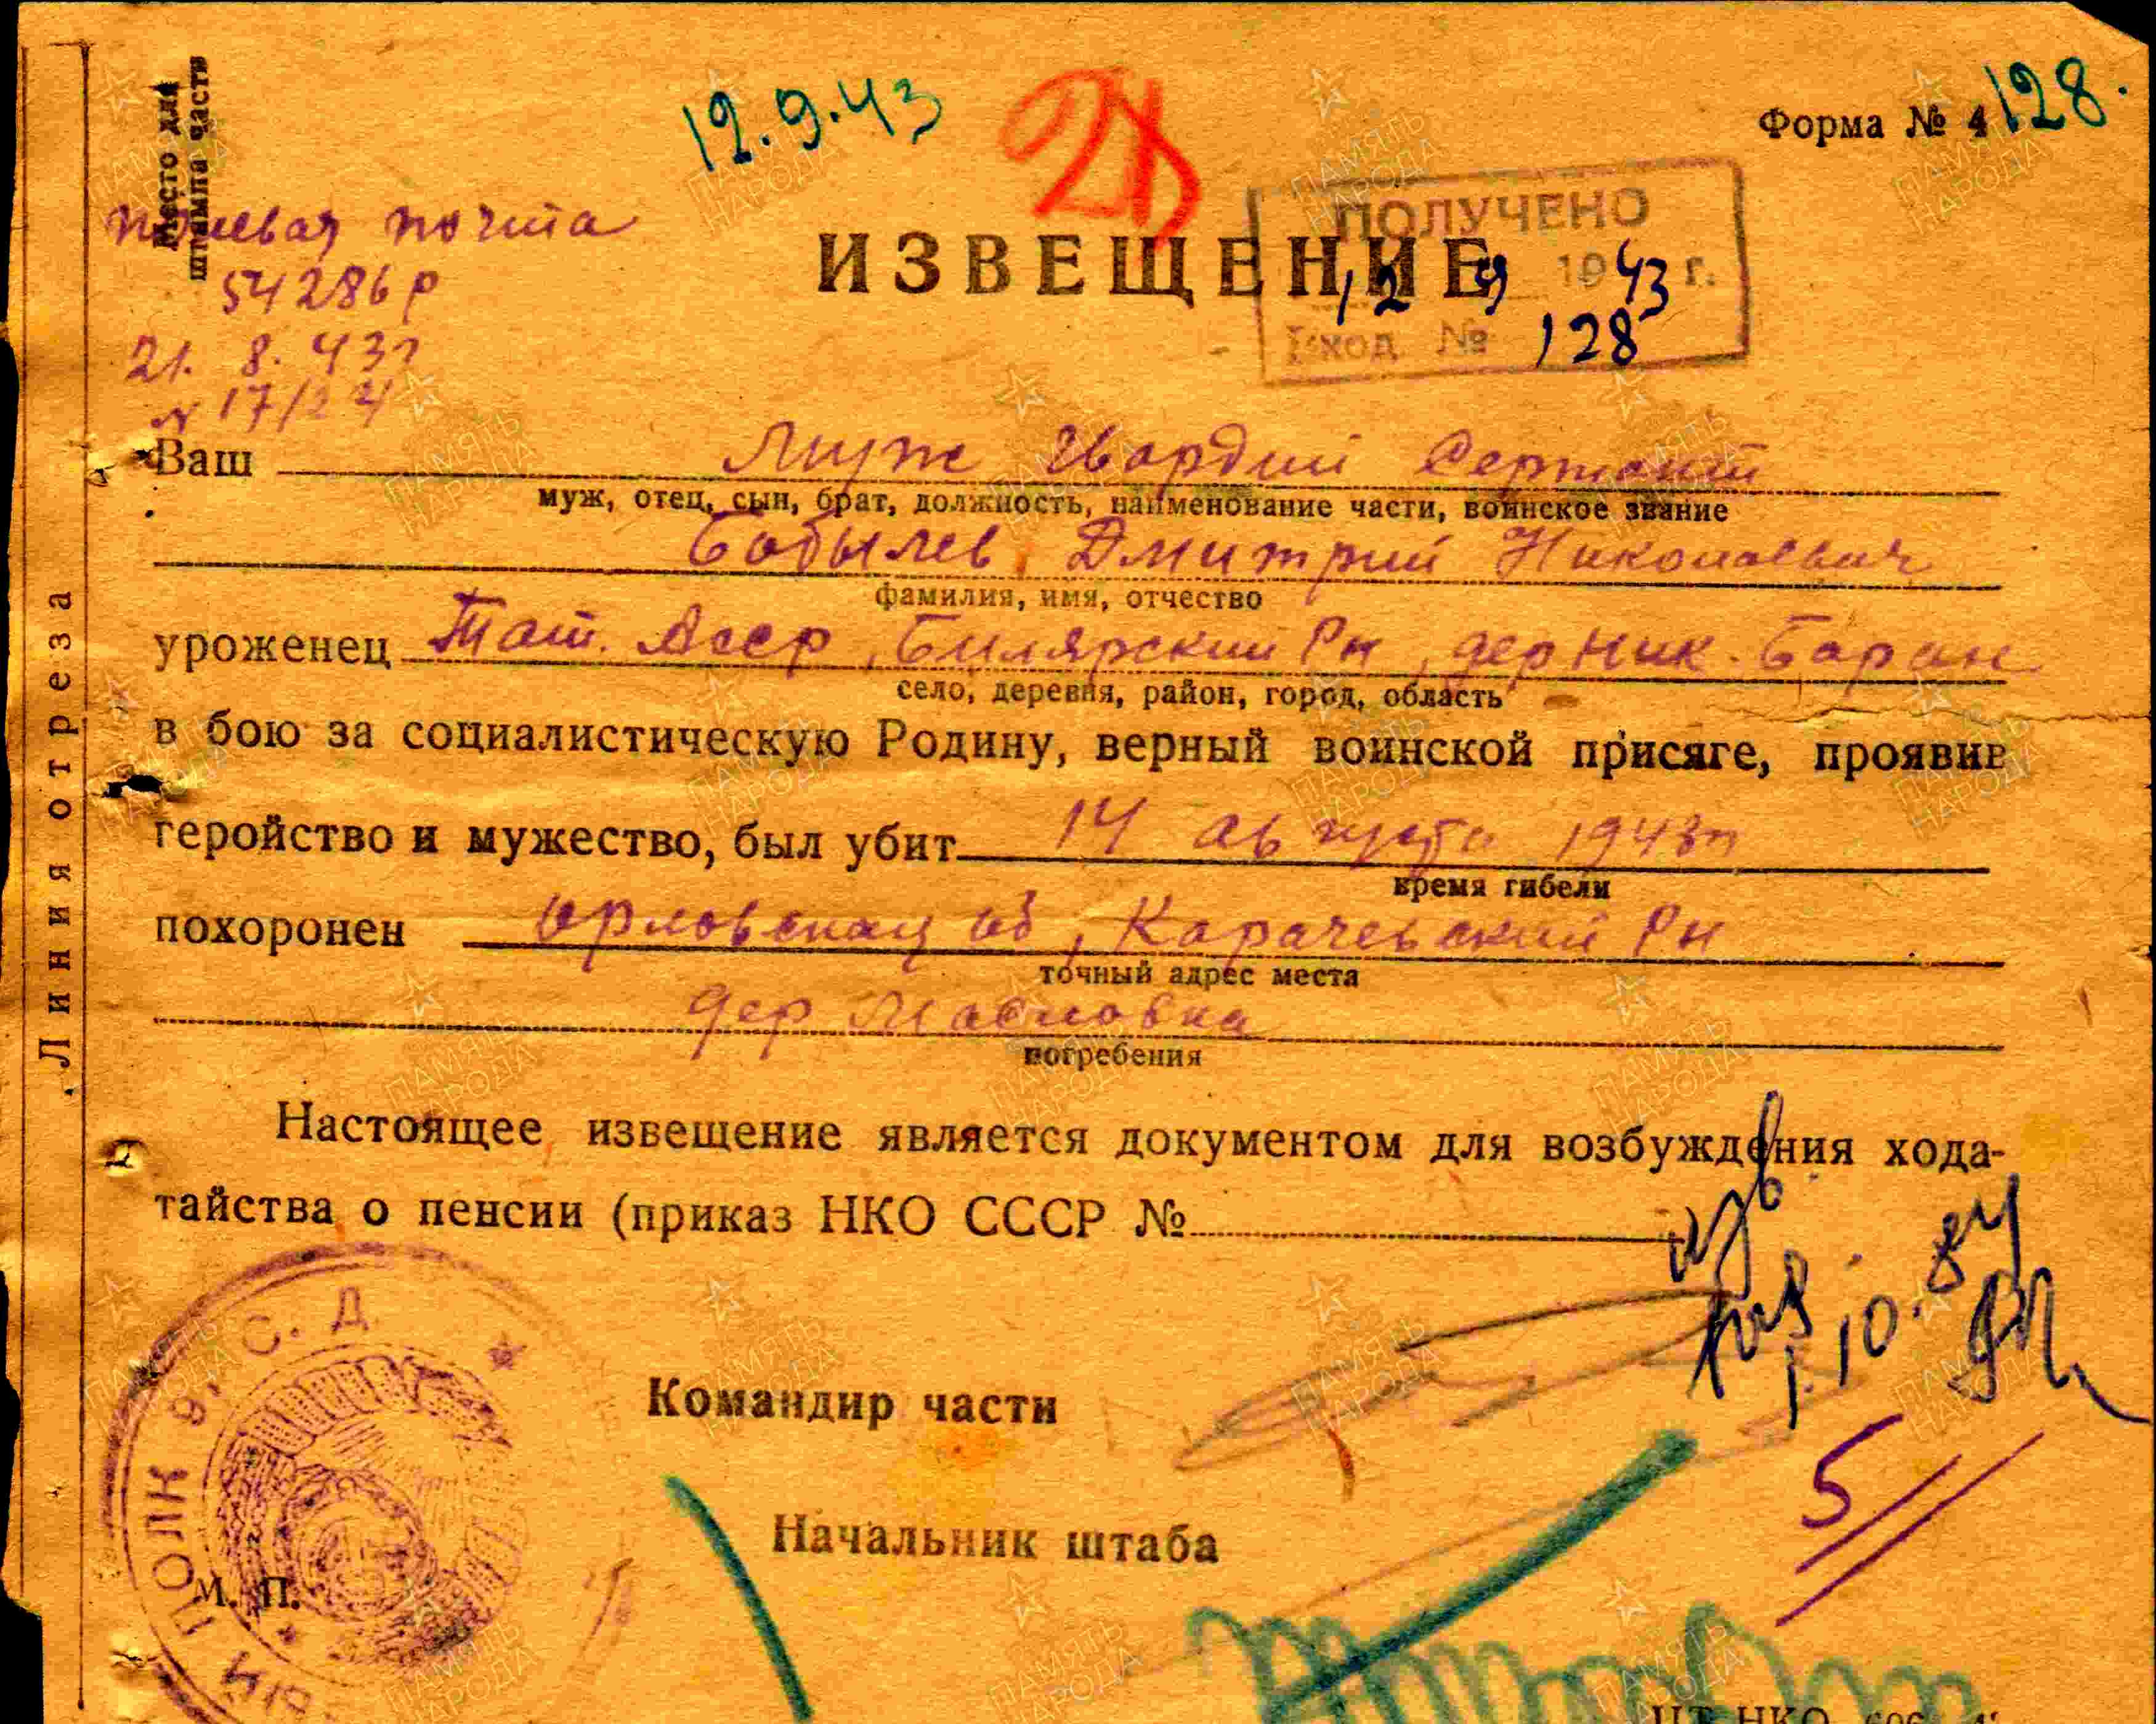 12.9.43
Форма № 4
128.
28
Место для
штампа части
полевая почта
54286 р
21. 8. 43 г
N 17/124
ПОЛУЧЕНО
12 9 1943 г.
Вход. № 128
ИЗВЕЩЕНИЕ
Ваш Муж Гвардии Сержант
муж, отец, сын, брат, должность, наименование части, воинское звание
Бобылев Дмитрий Николаевич
фамилия, имя, отчество
уроженец Тат. Асср, Билярский Рн, дер Ник. Баран
село, деревня, район, город, область
в бою за социалистическую Родину, верный воинской присяге, проявив
геройство и мужество, был убит 14 августа 1943 г
время гибели
похоронен Орловская об, Карачевский Рн
точный адрес места
дер Масловка
погребения
Настоящее извещение является документом для возбуждения хода-
тайства о пенсии (приказ НКО СССР №
Командир части
Начальник штаба
М. П.
ПОЛК 9. С. Д.
5
Линия отреза
ПАМЯТЬ
НАРОДА